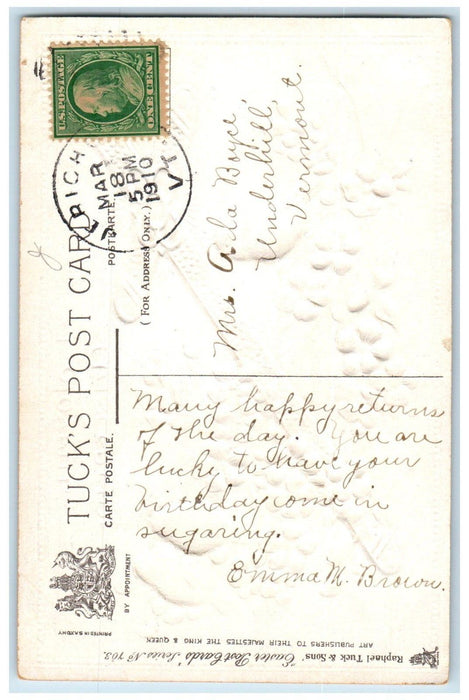 TUCK'S POST CARD
CARTE POSTALE.
POSTKARTE.
(FOR ADDRESS ONLY.)
BY APPOINTMENT
U.S. POSTAGE
ONE CENT
MAR
18
5 PM
1910
VT
Mrs. Ada Boyce,
Underhill,
Vermont.
Many happy returns
of the day. You are
lucky to have your
birthday come in
sugaring.
Emma M. Brown.
Raphael Tuck & Sons' "Easter Post Cards" Series No 702.
ART PUBLISHERS TO THEIR MAJESTIES THE KING & QUEEN